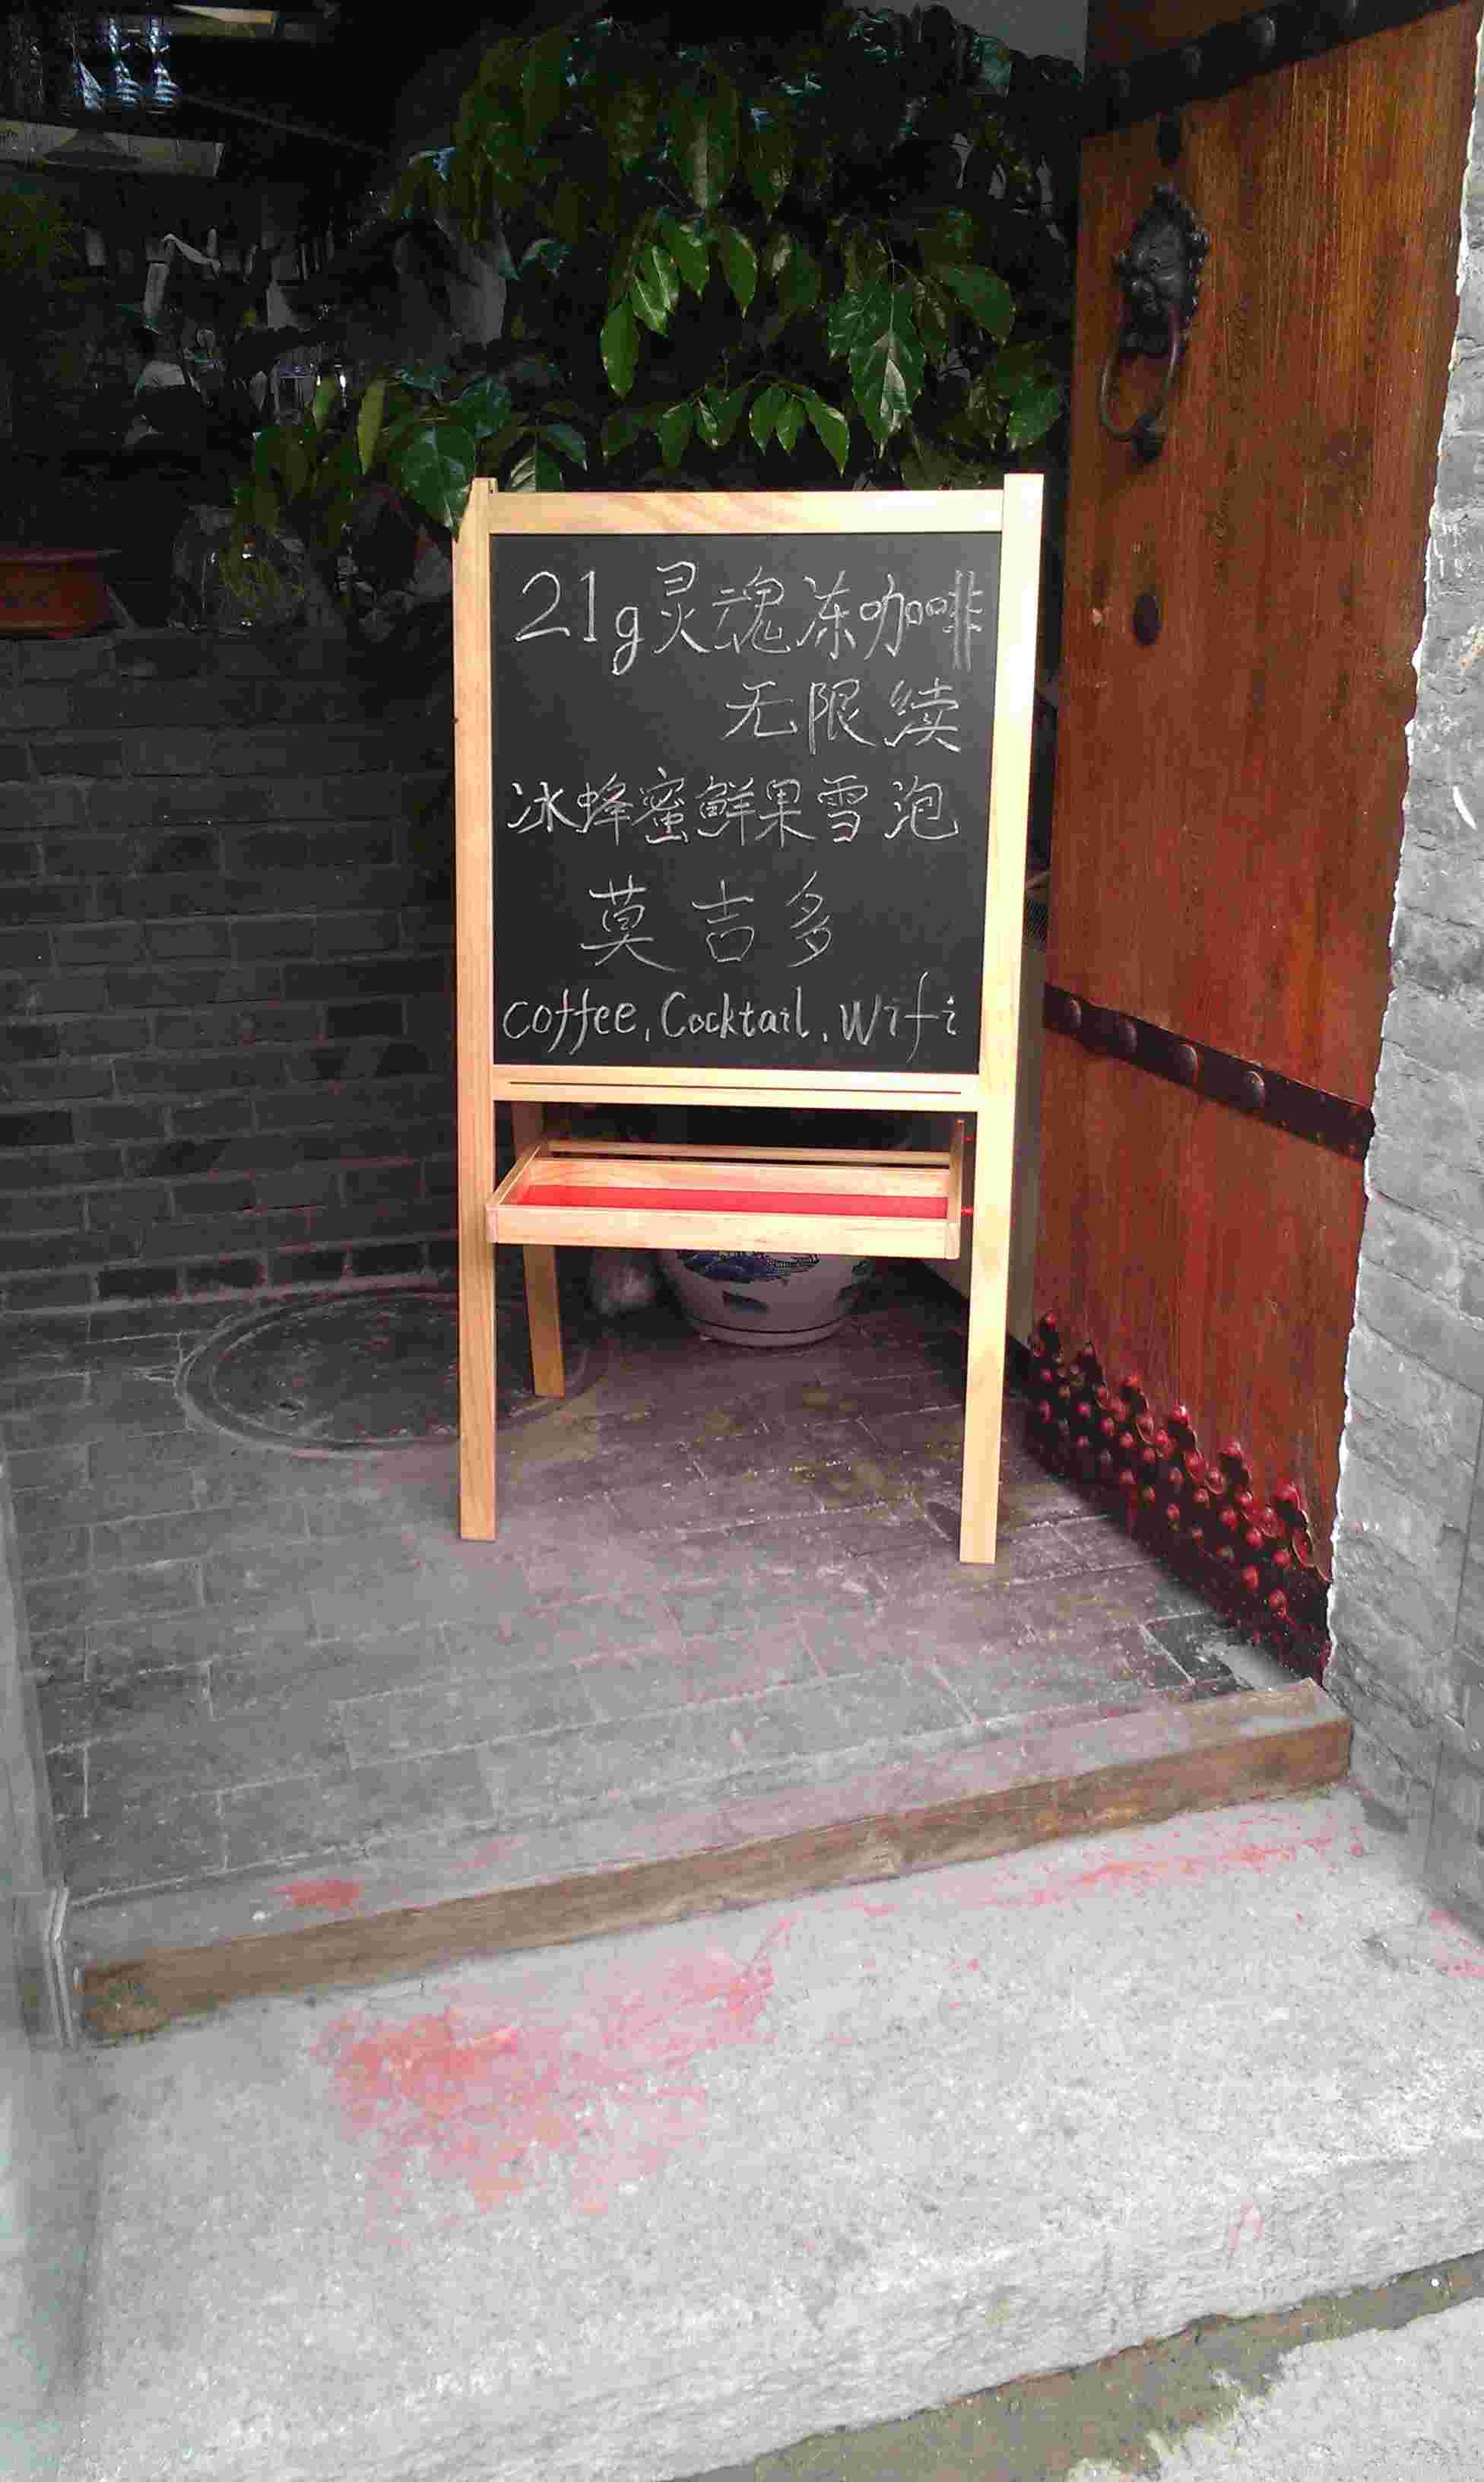 21g灵魂冻咖啡
无限续
冰蜂蜜鲜果雪泡
莫吉多
coffee, Cocktail, Wifi